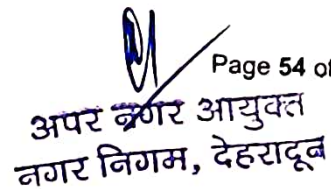 Page 54 of
अपर नगर आयुक्त
नगर निगम, देहरादून